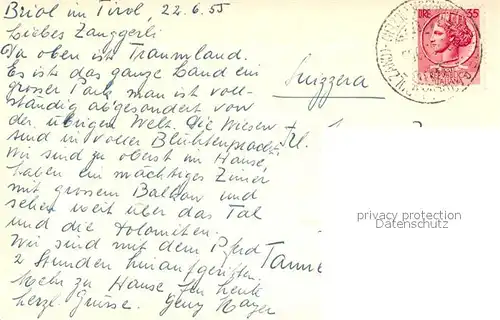 Briol im Tirol, 22.6.55
Liebes Zanggerli
Da oben ist Traumland.
Es ist das ganze Land ein
grosser Park man ist voll-
ständig abgesondert von
der übrigen Welt. Die Wiesen
sind in voller Blühtenpracht.
Wir sind zu oberst im Hause,
haben ein mächtiges Zimer
mit grossem Balkon und
sehen weit über das Tal
und die Dolomiten.
Wir sind mit dem Pferd
2 Stunden hinaufgeritten.
Mehr zu Hause für heute
herzl. Grüsse.
Svizzera
Frl.
Tanne
LIRE 35
privacy protection
watermark